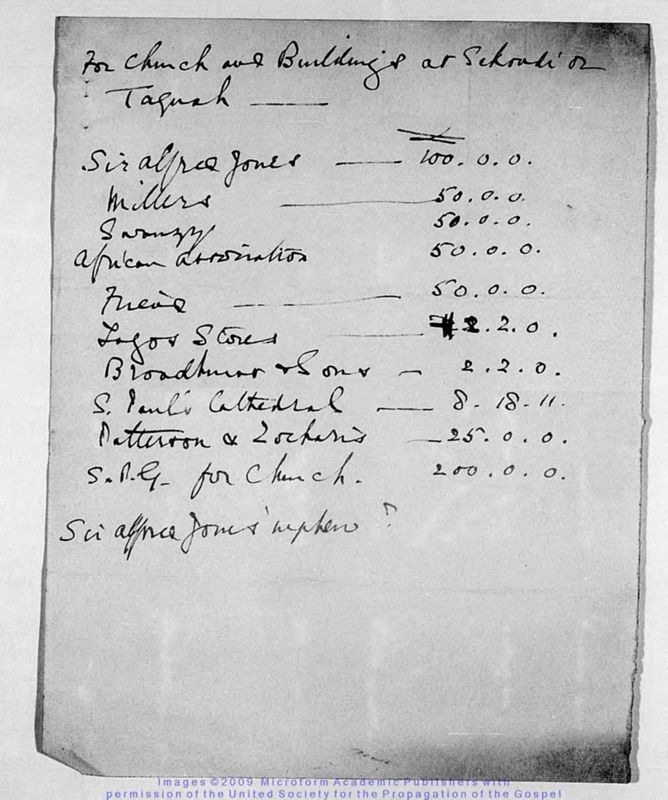 For Church and Buildings at Sekondi or
Taquah —
£
Sir Alfred Jones — 100. 0. 0.
Millers — 50. 0. 0.
Swanzy 50. 0. 0.
African Association 50. 0. 0.
Friend — 50. 0. 0.
Lagos Stores — 2. 2. 0.
Broadhurst & Sons — 2. 2. 0.
S. Paul's Cathedral — 8. 18. 11.
Patterson & Zochonis — 25. 0. 0.
S.P.G. for Church. 200. 0. 0.
Sir Alfred Jones' nephew?
Images ©2009 Microform Academic Publishers with
permission of the United Society for the Propagation of the Gospel